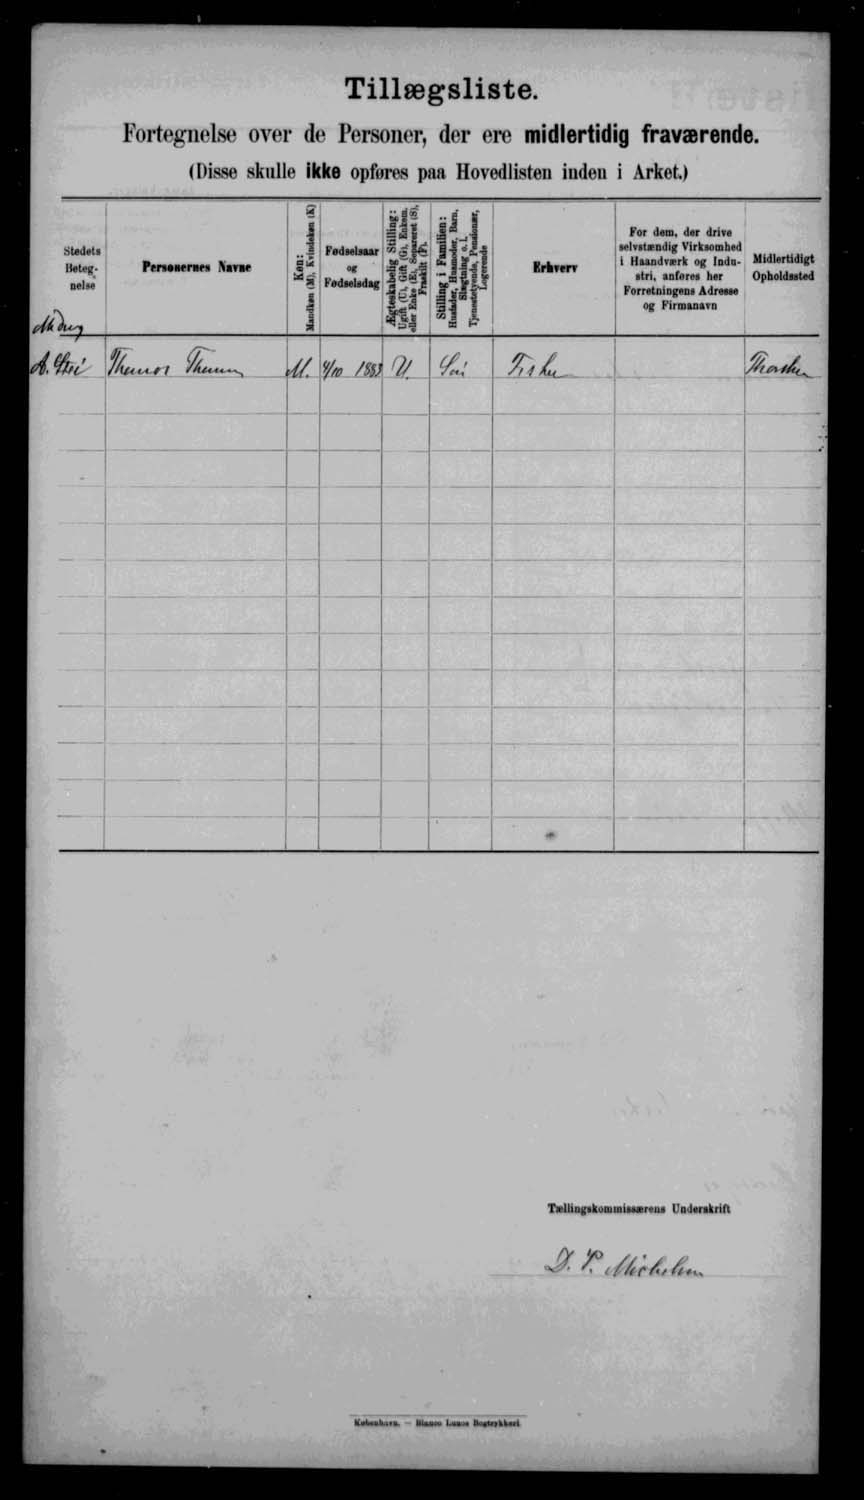 Tillægsliste.
Fortegnelse over de Personer, der ere midlertidig fraværende.
(Disse skulle ikke opføres paa Hovedlisten inden i Arket.)
Stedets
Beteg-
nelse
Personernes Navne
Køn:
Mandkøn (M), Kvindekøn (K)
Fødselsaar
og
Fødselsdag
Ægteskabelig Stilling:
Ugift (U), Gift (G), Enkem.
eller Enke (E), Separeret (S),
Fraskilt (F).
Stilling i Familien:
Husfader, Husmoder, Barn,
Slægtning o. l.
Tjenestetyende, Pensionær,
Logerende
Erhverv
For dem, der drive
selvstændig Virksomhed
i Haandværk og Indu-
stri, anføres her
Forretningens Adresse
og Firmanavn
Midlertidigt
Opholdssted
A. M. 4/10 1883 U. Søn Fisker
Tællingskommissærens Underskrift
D. P. Michelsen
København. — Bianco Lunos Bogtrykkeri